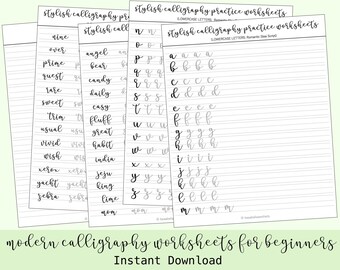 stylish calligraphy practice worksheets
stylish calligraphy practice worksheets
(LOWERCASE LETTERS, Romantic Skia Script)
nine
over
prime
quest
rare
sweet
trim
usual
vivid
wish
xerox
yacht
zebra
angel
bear
candy
daily
easy
fluff
great
habit
india
juju
king
lime
mom
n
o
p
q
r
s
t
u
v
w
x
y
z
a a a a
b b b b
c c c c
d d d d
e e e e
f f f f
g g g g
h h h h
i i i i
j j j j
k k k k
l l l l
m m m m
modern calligraphy worksheets for beginners
Instant Download